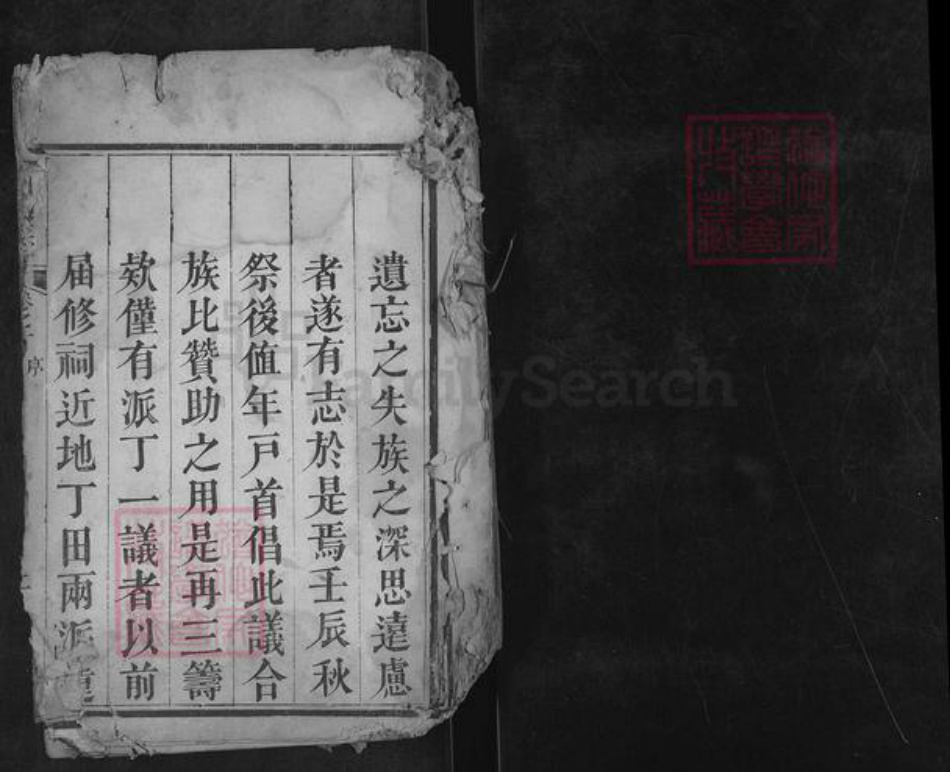 遺忘之失族之深思遠慮
者遂有志於是焉壬辰秋
祭後值年戶首倡此議合
族比贊助之用是再三籌
欵僅有派丁一議者以前
屆修祠近地丁田兩派
序
FamilySearch